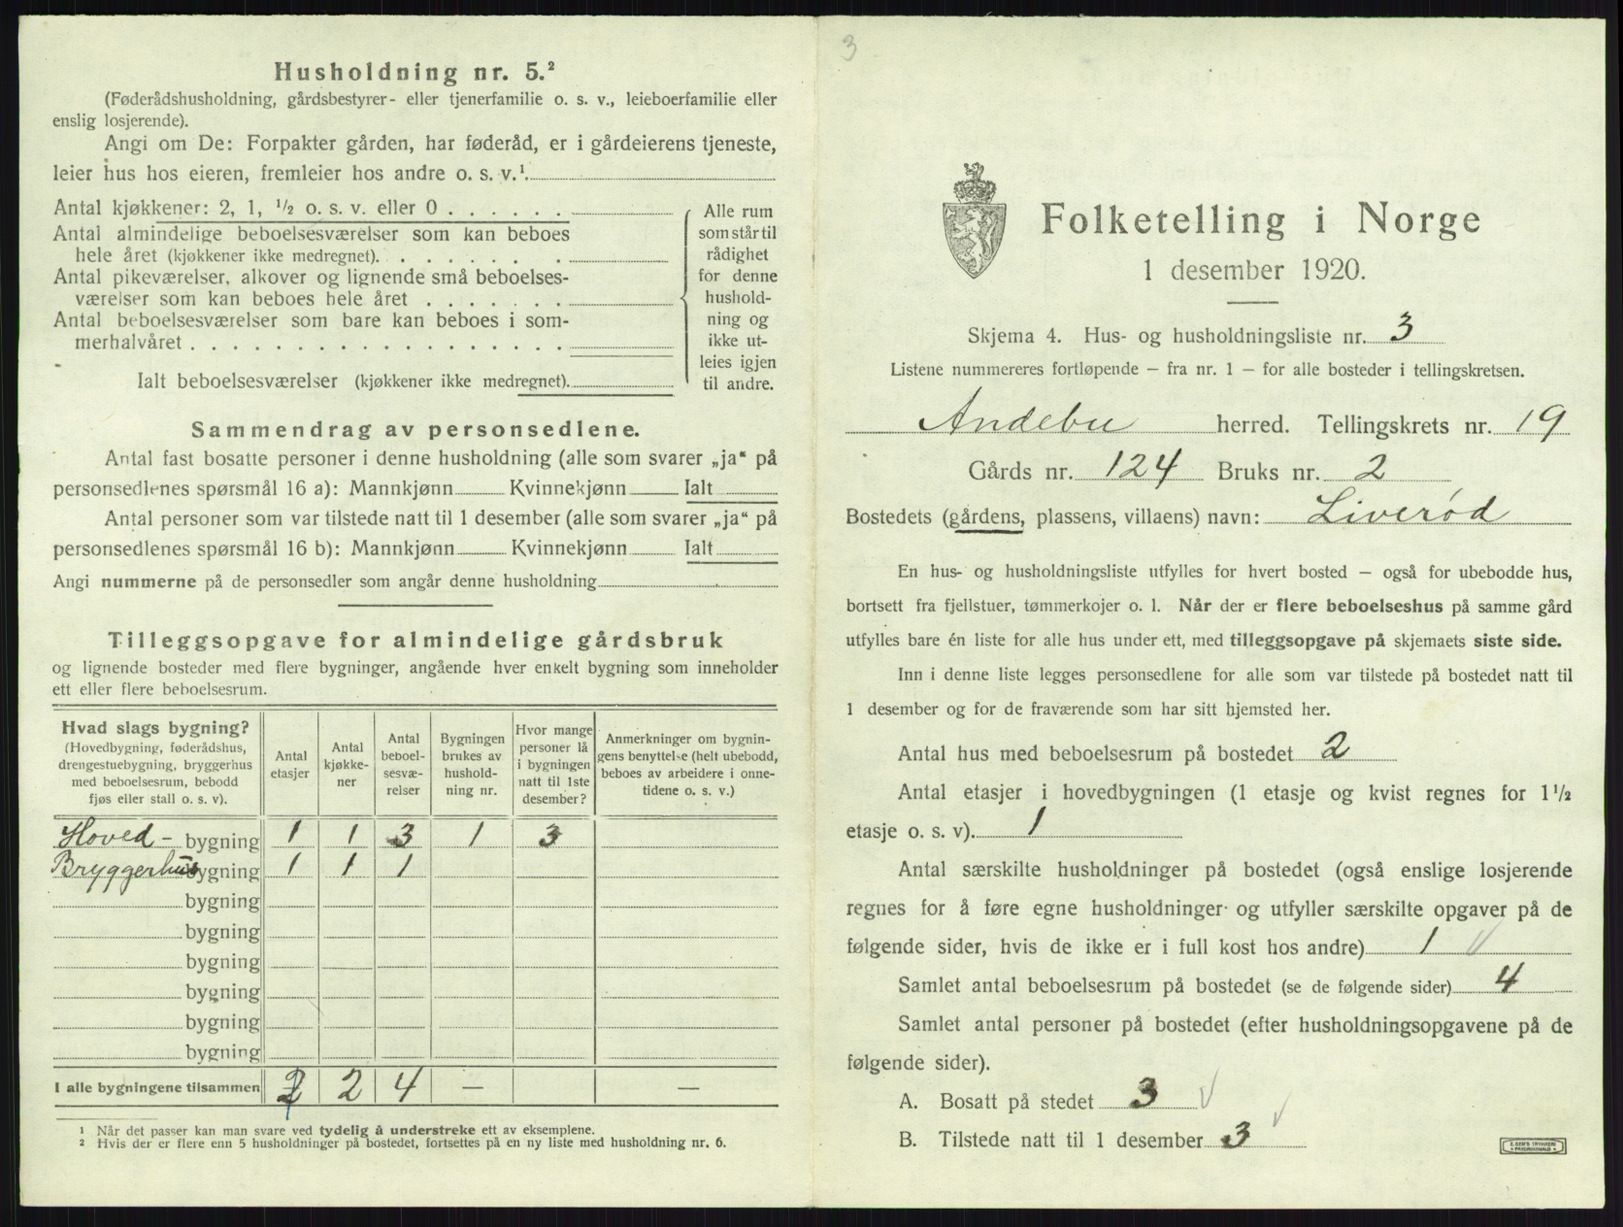 Husholdning nr. 5.²
(Føderådshusholdning, gårdsbestyrer- eller tjenerfamilie o. s. v., leieboerfamilie eller
enslig losjerende).
Angi om De: Forpakter gården, har føderåd, er i gårdeierens tjeneste,
leier hus hos eieren, fremleier hos andre o. s. v.¹.
Antal kjøkkener: 2, 1, ½ o. s. v. eller 0 . . . . . .
Antal almindelige beboelsesværelser som kan beboes
hele året (kjøkkener ikke medregnet). . . . . . . .
Antal pikeværelser, alkover og lignende små beboelses-
værelser som kan beboes hele året . . . . . . .
Antal beboelsesværelser som bare kan beboes i som-
merhalvåret . . . . . . . . . . . . . . . . . .
Ialt beboelsesværelser (kjøkkener ikke medregnet).
Alle rum
som står til
rådighet
for denne
hushold-
ning og
ikke ut-
leies igjen
til andre.
Sammendrag av personsedlene.
Antal fast bosatte personer i denne husholdning (alle som svarer „ja“ på
personsedlenes spørsmål 16 a): Mannkjønn Kvinnekjønn Ialt
Antal personer som var tilstede natt til 1 desember (alle som svarer „ja“ på
personsedlenes spørsmål 16 b): Mannkjønn Kvinnekjønn Ialt
Angi nummerne på de personsedler som angår denne husholdning
Tilleggsopgave for almindelige gårdsbruk
og lignende bosteder med flere bygninger, angående hver enkelt bygning som inneholder
ett eller flere beboelsesrum.
Hvad slags bygning?
(Hovedbygning, føderådshus,
drengestuebygning, bryggerhus
med beboelsesrum, bebodd
fjøs eller stall o. s. v).
Antal
etasjer
Antal
kjøkke-
ner
Antal
beboel-
sesvæ-
relser
Bygningen
brukes av
hushold-
ning nr.
Hvor mange
personer lå
i bygningen
natt til 1ste
desember?
Anmerkninger om bygnin-
gens benyttelse (helt ubebodd,
beboes av arbeidere i onne-
tidene o. s. v.)
Hoved- bygning 1 1 3 1 3
Bryggerhus bygning 1 1 1
bygning
bygning
bygning
bygning
bygning
bygning
I alle bygningene tilsammen 2 2 4 — —
¹ Når det passer kan man svare ved tydelig å understreke ett av eksemplene.
² Hvis der er flere enn 5 husholdninger på bostedet, fortsettes på en ny liste med husholdning nr. 6.
3
Folketelling i Norge
1 desember 1920.
Skjema 4. Hus- og husholdningsliste nr. 3
Listene nummereres fortløpende — fra nr. 1 — for alle bosteder i tellingskretsen.
Andebu herred. Tellingskrets nr. 19
Gårds nr. 124 Bruks nr. 2
Bostedets (gårdens, plassens, villaens) navn: Liverød
En hus- og husholdningsliste utfylles for hvert bosted — også for ubebodde hus,
bortsett fra fjellstuer, tømmerkojer o. l. Når der er flere beboelseshus på samme gård
utfylles bare én liste for alle hus under ett, med tilleggsopgave på skjemaets siste side.
Inn i denne liste legges personsedlene for alle som var tilstede på bostedet natt til
1 desember og for de fraværende som har sitt hjemsted her.
Antal hus med beboelsesrum på bostedet 2
Antal etasjer i hovedbygningen (1 etasje og kvist regnes for 1½
etasje o. s. v). 1
Antal særskilte husholdninger på bostedet (også enslige losjerende
regnes for å føre egne husholdninger og utfyller særskilte opgaver på de
følgende sider, hvis de ikke er i full kost hos andre) 1
Samlet antal beboelsesrum på bostedet (se de følgende sider) 4
Samlet antal personer på bostedet (efter husholdningsopgavene på de
følgende sider).
A. Bosatt på stedet 3
B. Tilstede natt til 1 desember 3